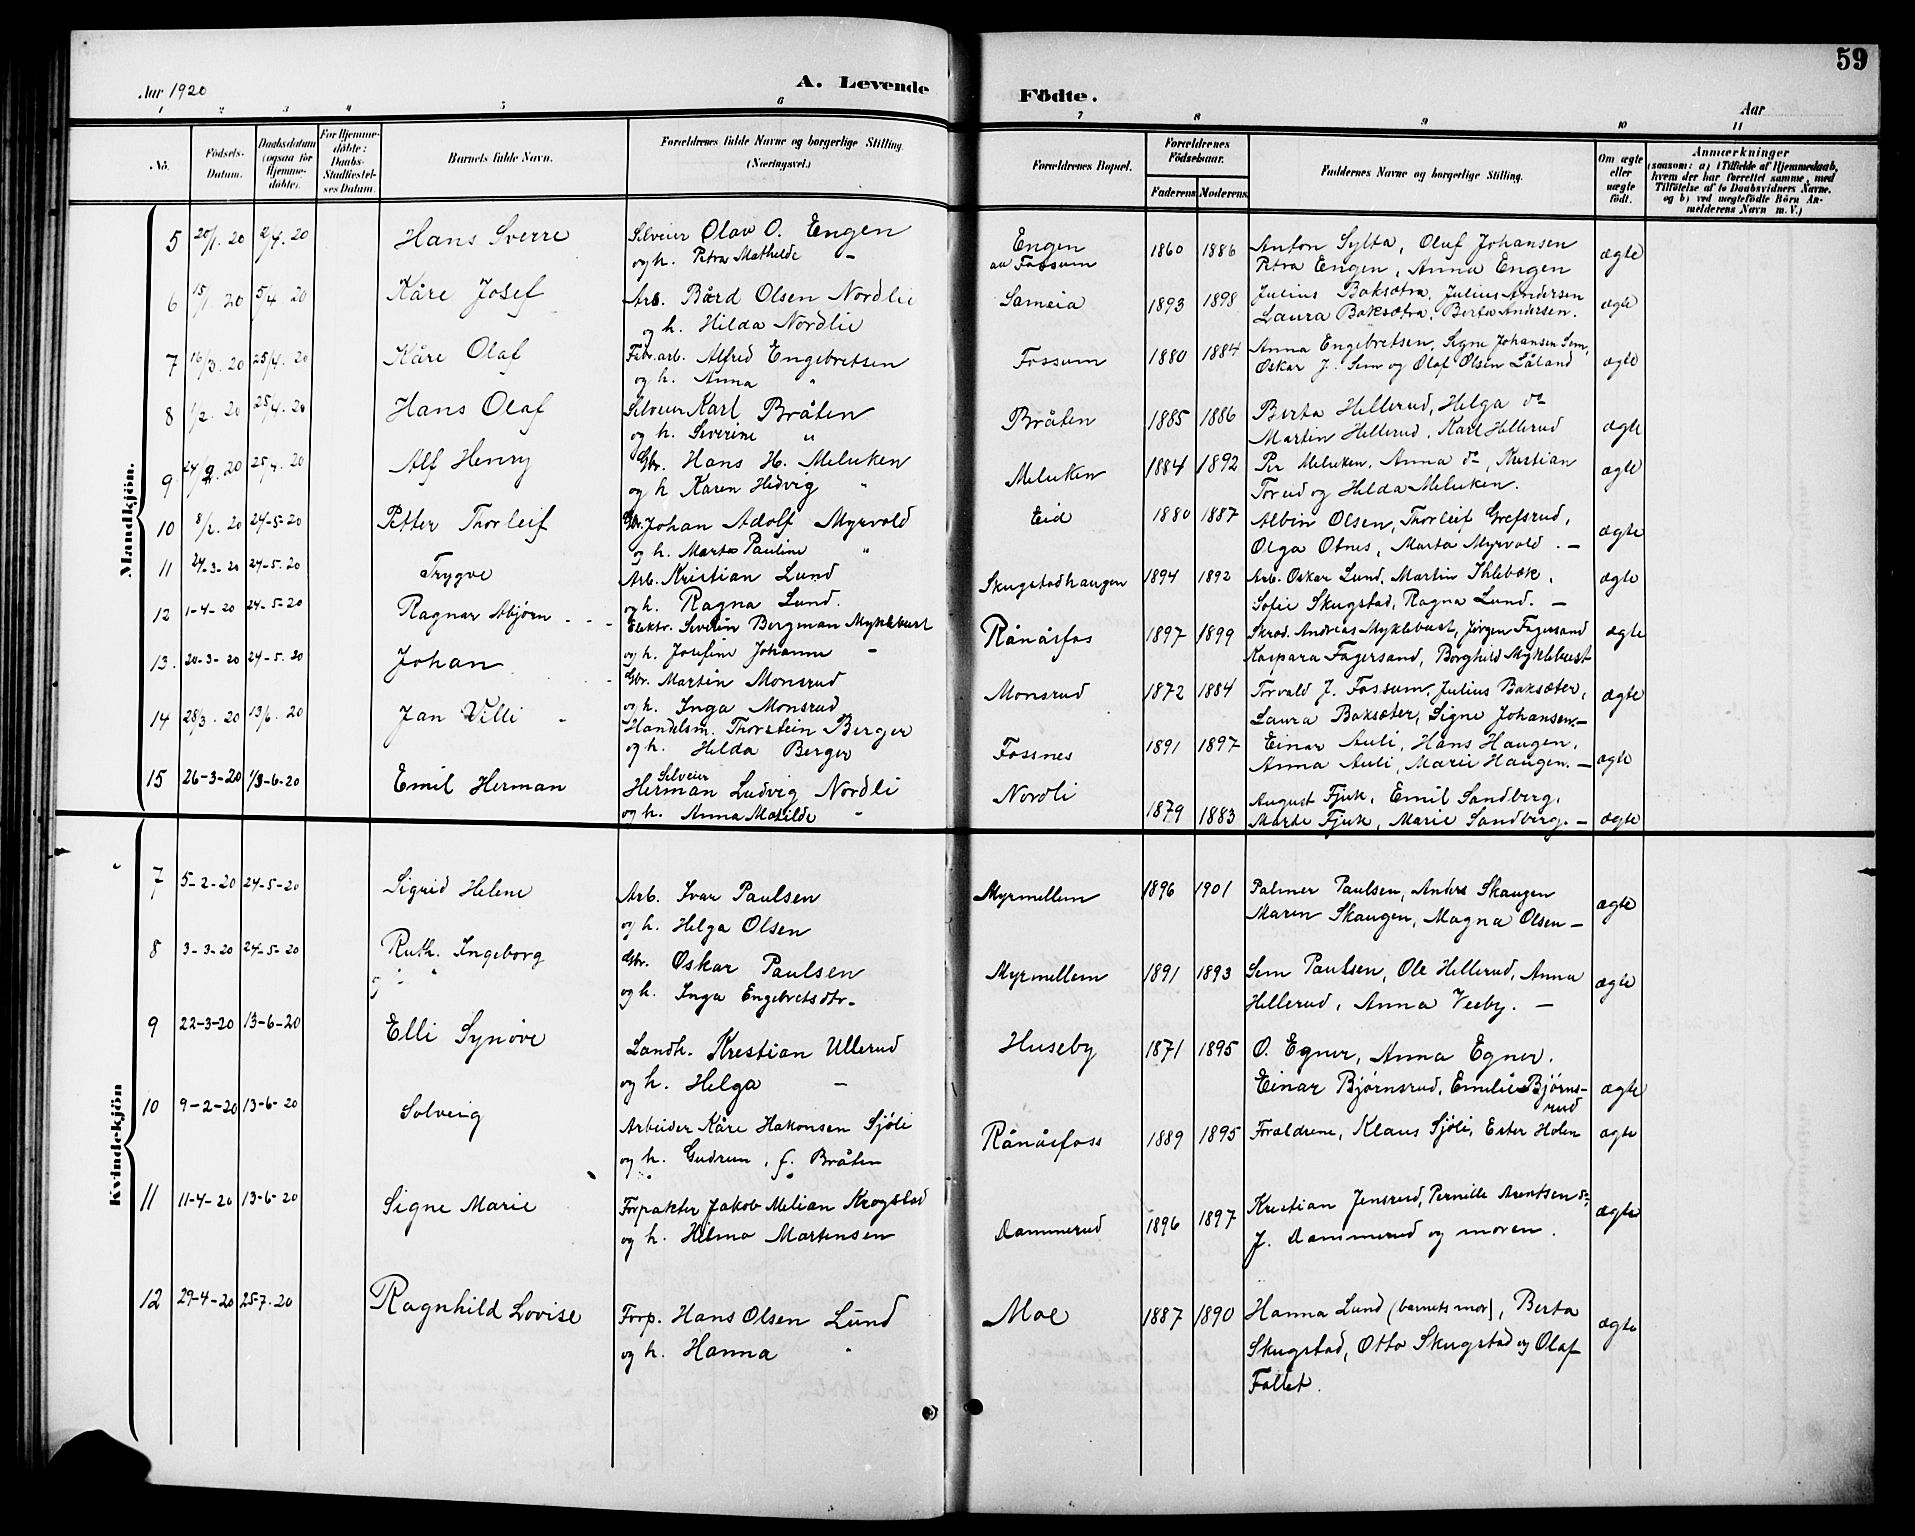 59
Aar 1920
A. Levende Födte.
Aar
1 2 3 4 5 6 7 8 9 10 11
No.
Födsels-Datum.
Daabsdatum (ogsaa for Hjemme-døbte).
For Hjemme-døbte: Daabs-Stadfæstel-ses Datum.
Barnets fulde Navn.
Forældrenes fulde Navne og borgerlige Stilling. (Næringsvei.)
Forældrenes Bopæl.
Forældrenes Fødselsaar.
Faderens Moderens
Faddernes Navne og borgerlige Stilling.
Om ægte eller uægte født.
Anmærkninger
(saasom: a) i Tilfælde af Hjemmedaab,
hvem der har forrettet samme, med
Tilføielse af to Daabsvidners Navne.
og b) ved uægtefødte Börn An-
melderens Navn m. V.)
Mandkjön.
5 20/1.20 2/4.20 Hans Sverre Selveier Olav O. Engen Engen 1860 1886 Anton Sylta, Oluf Johansen ægte
og h. Petra Mathilde - av Fossum Petra Engen, Anna Engen
6 15/1 20 5/4 20 Kåre Josef Arb. Bård Olsen Nordlie Sameia 1893 1898 Julius Baksætra, Julius Andersen ægte
og h. Hilda Nordlie Laura Baksætra, Berta Andersen.
7 16/3.20 25/4.20 Kåre Olaf Fabr.arb. Alfred Engebretsen Fossum 1880 1884 Anna Engebretsen, Signe Johansen Sem, ægte
og h. Anna " Oskar J. Sem og Olaf Olsen Låland
8 1/2.20 25/4.20 Hans Olaf Selveier Karl Bråten Bråten 1885 1886 Berta Hellerud, Helga do ægte
og h. Severine " Martin Hellerud, Karl Hellerud
9 24/2.20 25/4.20 Alf Henry Gbr. Hans H. Meluken Meluken 1884 1892 Per Meluken, Anna do, Kristian ægte
og h Karen Hedvig " Toreid og Hilda Meluken.
10 8/2.20 24-5-20 Petter Thorleif Gbr. Johan Adolf Myrvold Eid 1880 1887 Albin Olsen, Thorleif Grefsrud, ægte
og h. Marta Pauline " Olga Otnes, Marta Myrvold. -
11 24-3-20 24-5-20 Trygve Arb. Kristian Lund Skugstadhaugen 1894 1892 Arb. Oskar Lund, Martin Ihlebæk, ægte
og h. Ragna Lund. Sofie Skugstad, Ragna Lund. -
12 1-4-20 24-5-20 Ragnar Asbjørn Elektr. Severin Bergman Myklebust Rånåsfos 1897 1899 Skred. Andreas Myklebust, Jørgen Fagersand ægte
og h. Josefine Johanne - Kaspara Fagersand, Borghild Myklebust
13. 20-3-20 24-5.20 Johan Gbr. Martin Monsrud Monsrud 1872 1884 Torvald J. Fossum, Julius Baksæter, ægte
og h. Inga Monsrud Laura Baksæter, Signe Johansen. -
14 28/3.20 13/6.20 Jan Villi Handelsm. Thorstein Berger Fossnes 1891 1897 Einar Auli, Hans Haugen, ægte
og h. Hilda Berger Anna Auli, Marie Haugen. -
15 26-3-20 13-6-20 Emil Herman Selveier Herman Ludvig Nordli Nordli 1879 1883 August Fjuk, Emil Sandberg, ægte
og h. Anna Matilde - Marte Fjuk, Marie Sandberg. -
Kvindekjön
7 5-2-20 24-5-20 Sigrid Helene Arb. Ivar Paulsen Myrmellem 1896 1901 Palmer Paulsen, Anders Skaugen ægte
og h. Helga Olsen Maren Skaugen, Magna Olsen -
8 3-3-20 24-5-20 Ruth Ingeborg Gbr. Oskar Paulsen Myrmellem 1891 1893 Sem Paulsen, Ole Hellerud, Anna ægte
og h. Inga Engebretsdtr. Hellerud, Anna Veeby. -
9 22-3-20 13-6-20 Elli Synøve Landh. Krestian Ullerud Huseby 1871 1895 O. Egner, Anna Egner,
og h. Helga - Einar Bjørnsrud, Emilie Bjørns-rud ægte
10 9-2-20 13-6-20 Solveig Arbeider Kåre Hakonsen Sjöli Rånåsfoss 1889 1895 Forældrene, Klaus Sjöli, Ester Holen ægte
og h. Gudrun, f. Bråten
11 11-4-20 13-6-20 Signe Marie Forpakter Jakob Melian Krogstad Dammerud 1896 1897 Kristian Jensrud, Pernille Arentsen do, ægte
og h. Hilma Martensen J. Dammerud og moren.
12 29-4-20 25-7-20 Ragnhild Lovise Forp. Hans Olsen Lund Moe 1887 1890 Hanna Lund (barnets mor), Berta ægte
og h. Hanna " Skugstad, Otto Skugstad og Olaf
Fallet.